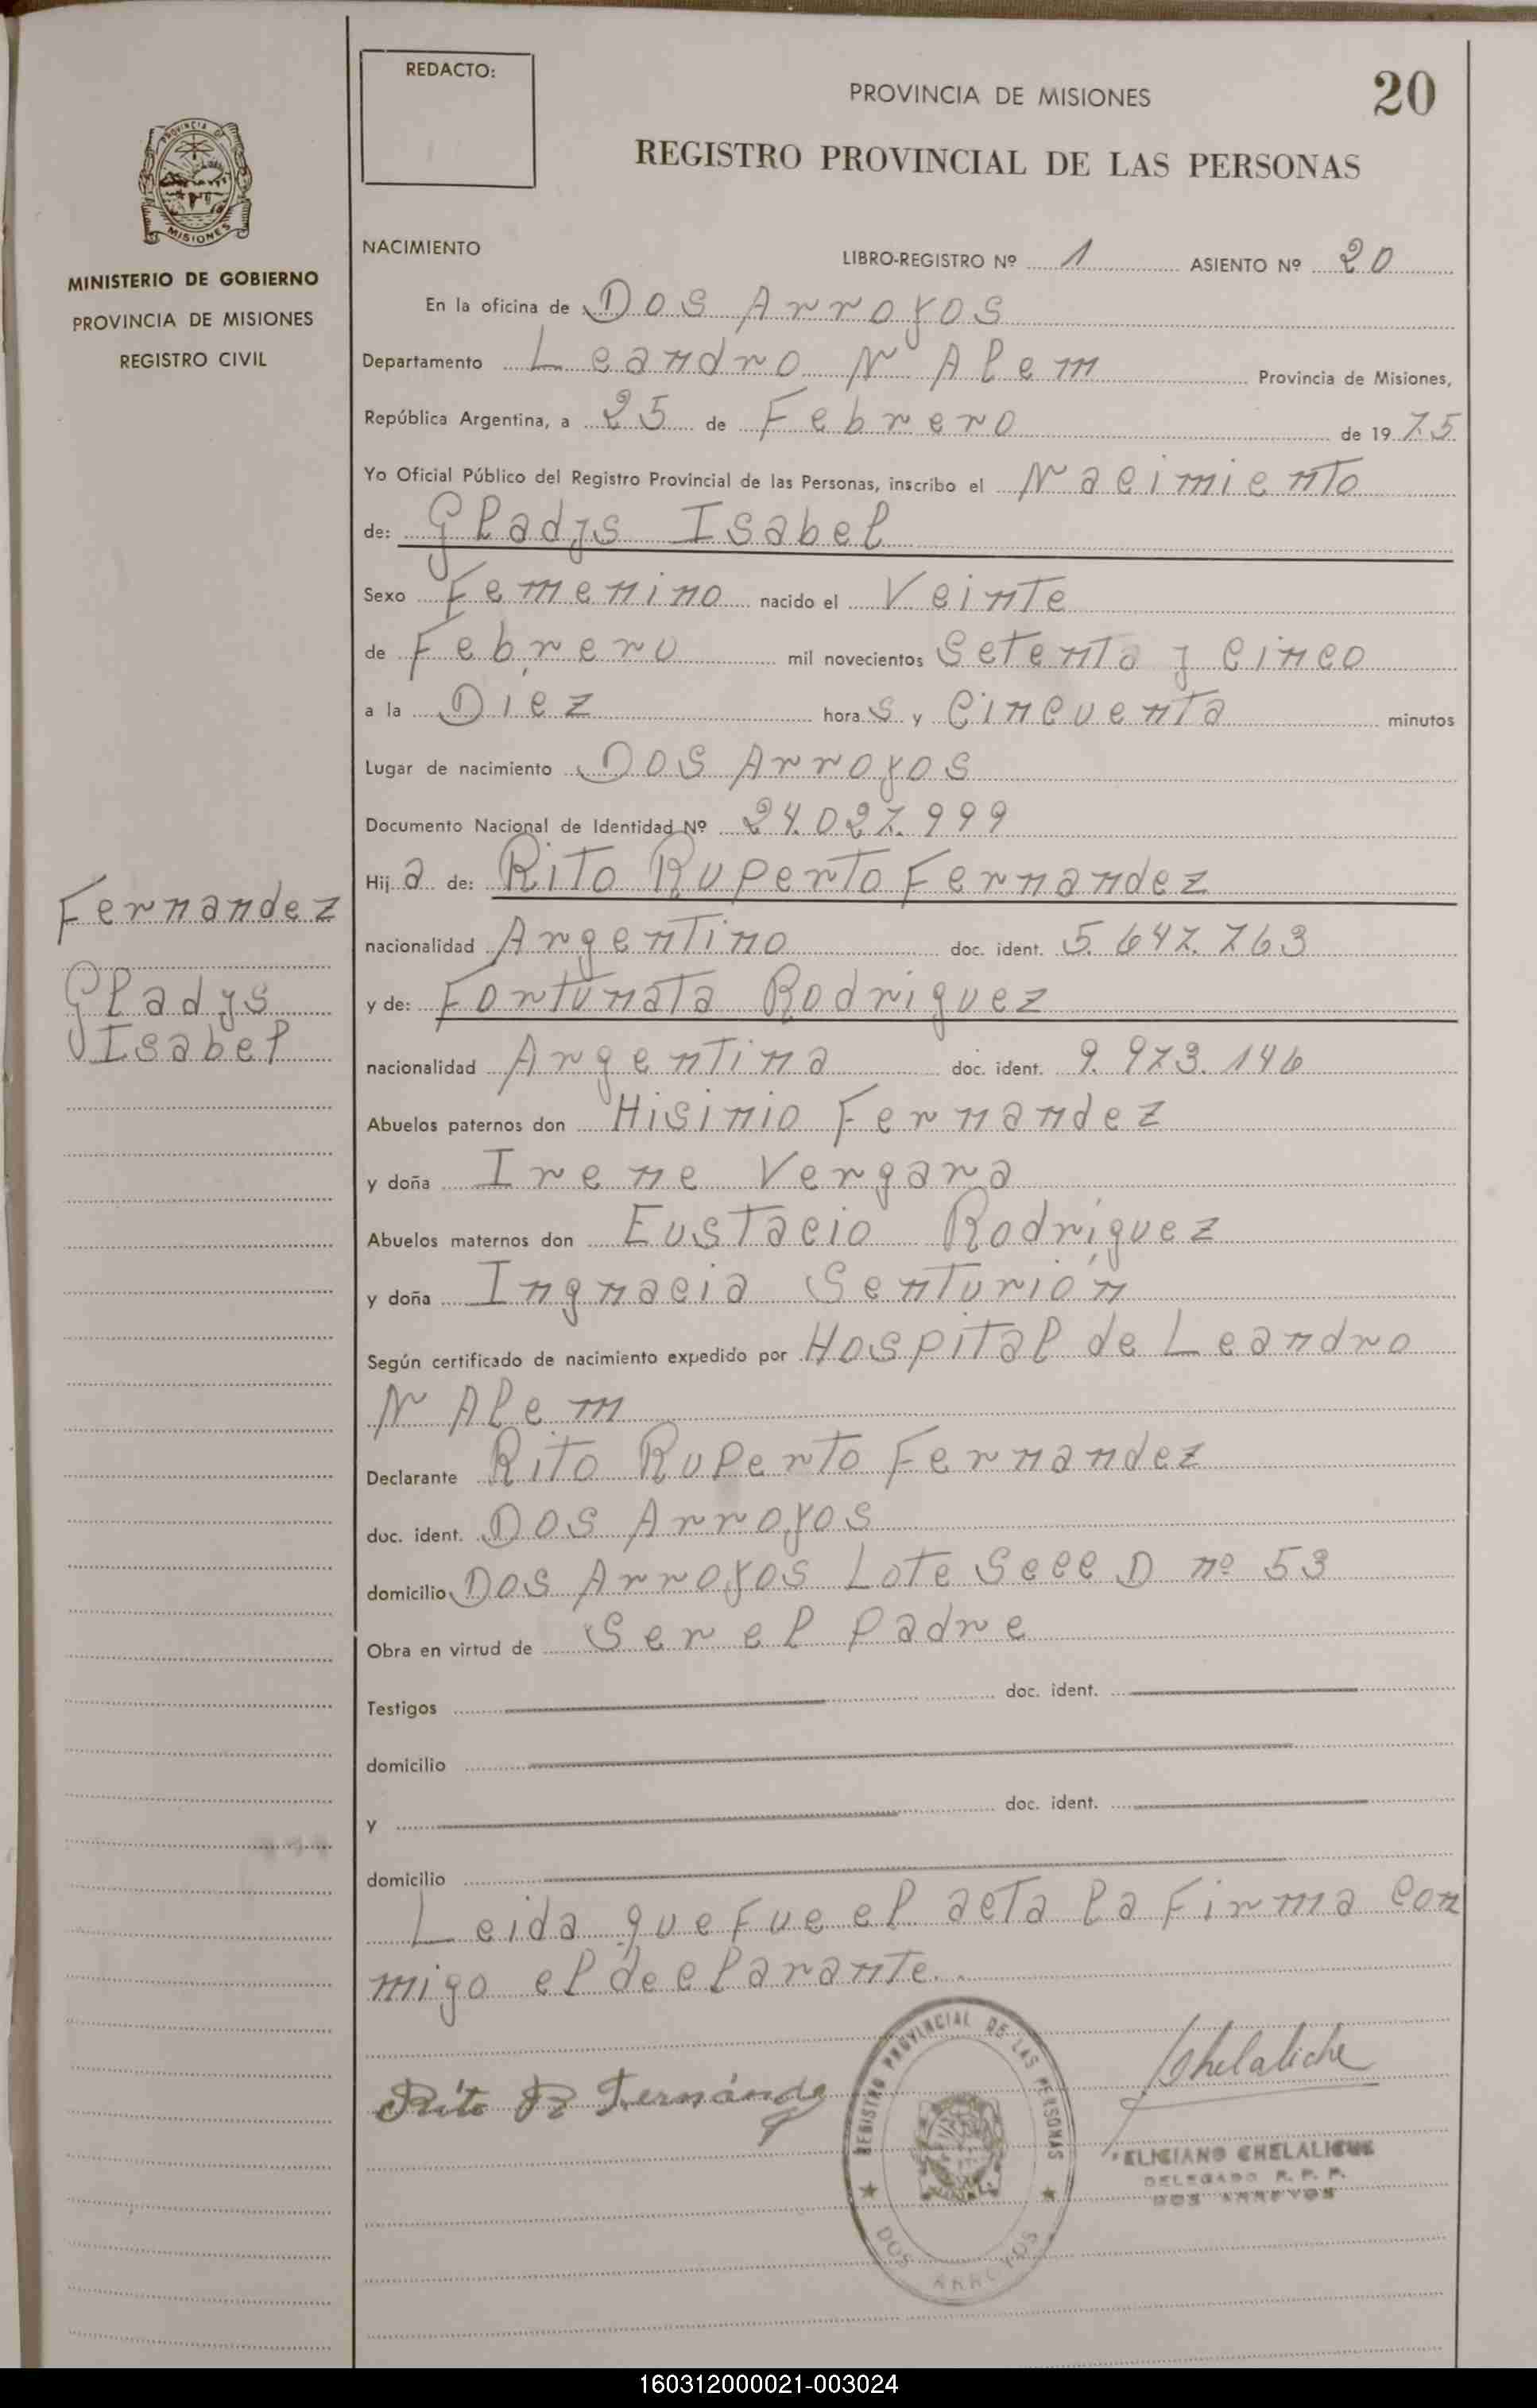 REDACTO:
PROVINCIA DE MISIONES
20
REGISTRO PROVINCIAL DE LAS PERSONAS
PROVINCIA DE
MISIONES
MINISTERIO DE GOBIERNO
PROVINCIA DE MISIONES
REGISTRO CIVIL
NACIMIENTO
LIBRO-REGISTRO Nº 1 ASIENTO Nº 20
En la oficina de Dos Arroyos
Departamento Leandro N Alem Provincia de Misiones,
República Argentina, a 25 de Febrero de 1975
Yo Oficial Público del Registro Provincial de las Personas, inscribo el Nacimiento
de: Gladys Isabel
Sexo Femenino nacido el Veinte
de Febrero mil novecientos Setenta y Cinco
a la Diez horas y Cincuenta minutos
Lugar de nacimiento Dos Arroyos
Documento Nacional de Identidad Nº 24.027.999
Hija de: Rito Ruperto Fernandez
Fernandez
nacionalidad Argentino doc. ident. 5.647.763
Gladys
y de: Fortunata Rodriguez
Isabel
nacionalidad Argentina doc. ident. 9.973.146
Abuelos paternos don Hisinio Fernandez
y doña Irene Vergara
Abuelos maternos don Eustacio Rodriguez
y doña Ingnacia Senturión
Según certificado de nacimiento expedido por Hospital de Leandro
N Alem
Declarante Rito Ruperto Fernandez
doc. ident. Dos Arroyos
domicilio Dos Arroyos Lote Secc D nº 53
Obra en virtud de Ser el Padre
Testigos doc. ident.
domicilio
y doc. ident.
domicilio
Leida que fue el acta la Firma con
migo el declarante.
Rito R Fernández
REGISTRO PROVINCIAL DE LAS PERSONAS
DOS ARROYOS
Chelaliche
FELICIANO CHELALICHE
DELEGADO R. P. P.
DOS ARROYOS
160312000021-003024